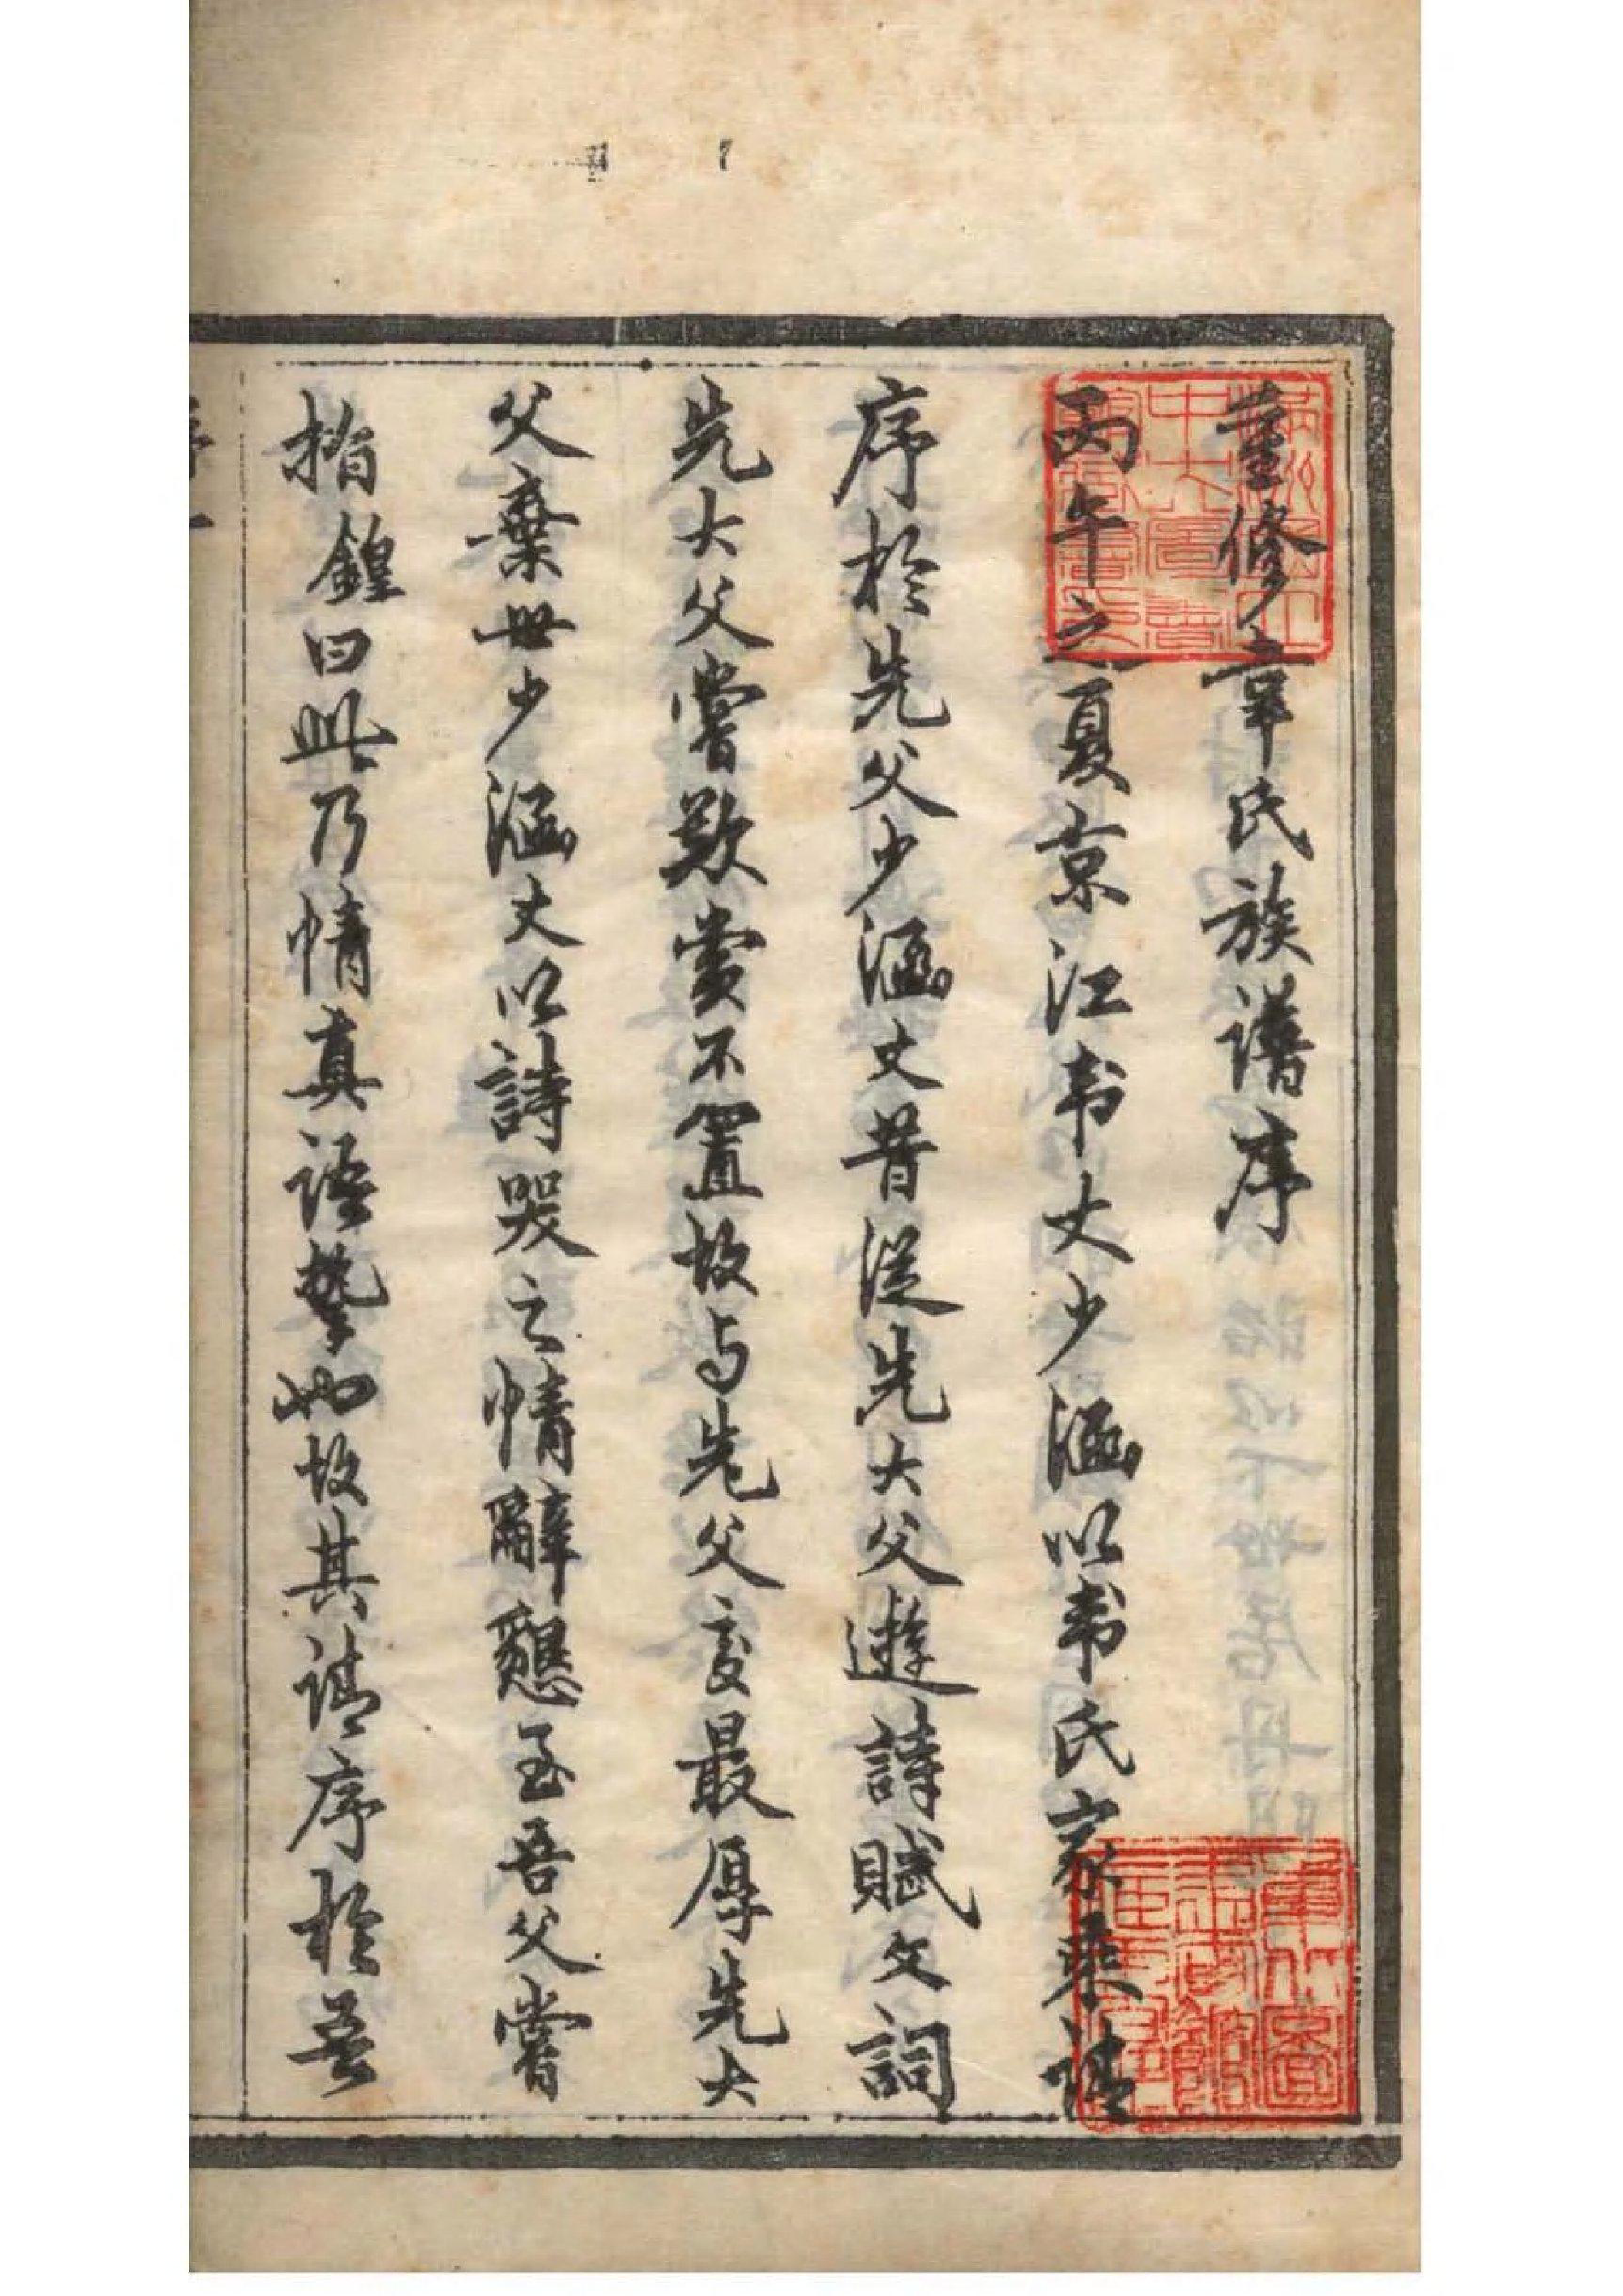 重修韋氏族譜序
丙午之夏京江韦丈少涵以韦氏家乘請
序於先父少涵丈昔從先大父遊詩賦文詞
先大父嘗歎賞不置故与先父交最厚先大
父棄世少涵丈以詩哭之情辭懇至吾父嘗
指鍠曰此乃情真語摯也故其請序於吾